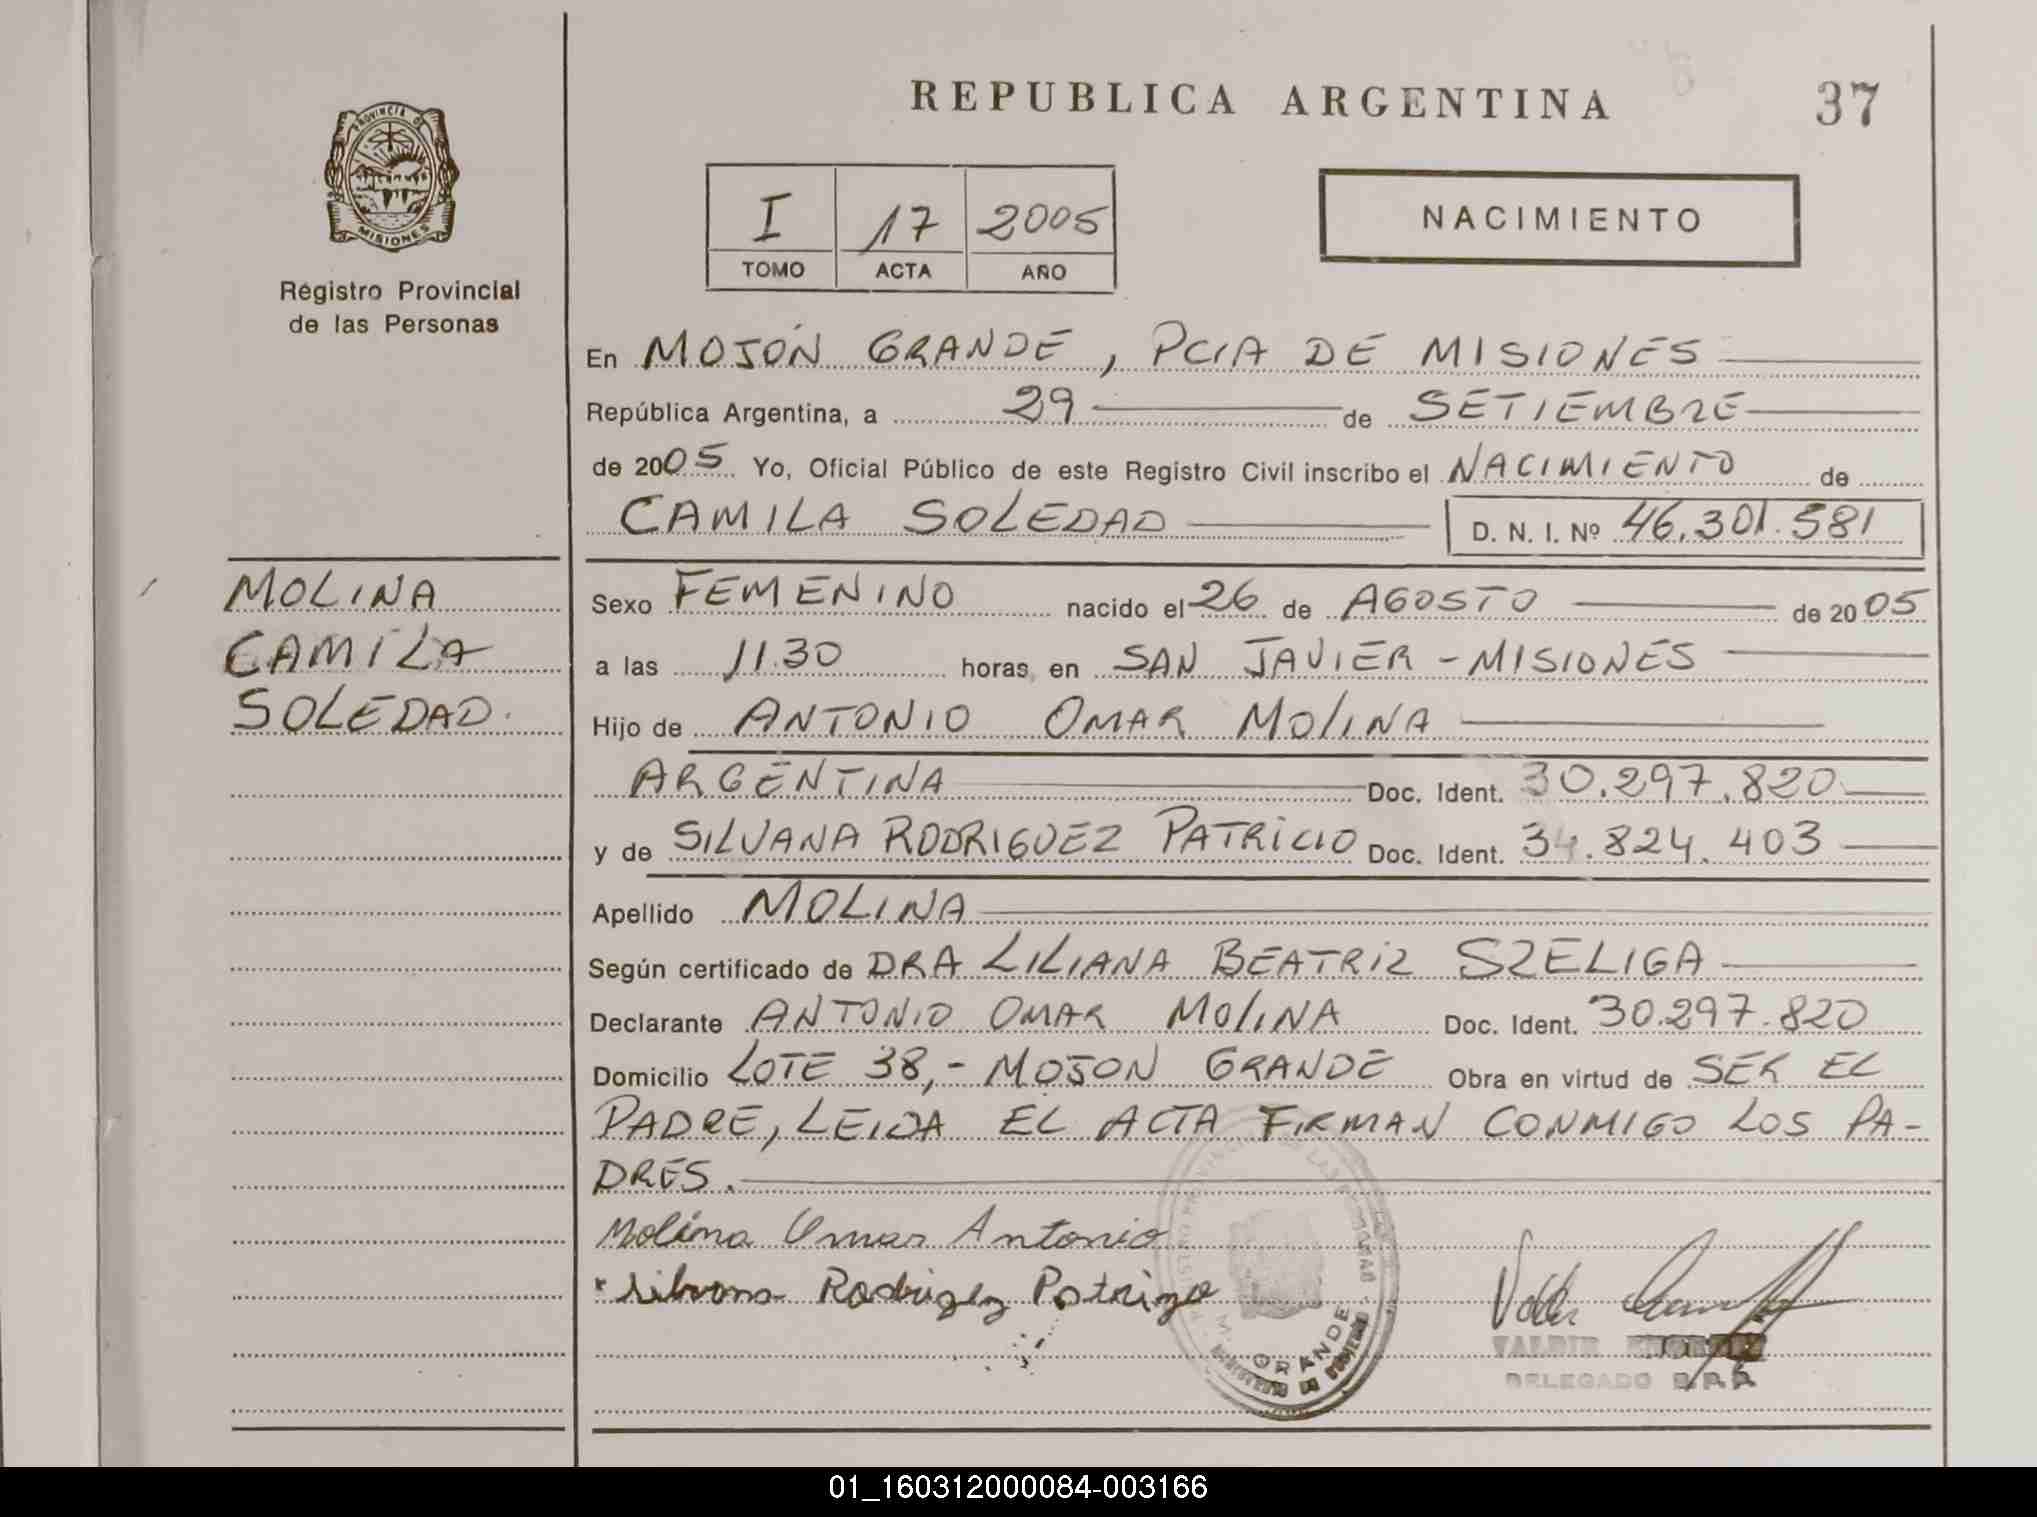 REPUBLICA ARGENTINA
37
PROVINCIA DE
MISIONES
Registro Provincial
de las Personas
I 17 2005
TOMO ACTA AÑO
NACIMIENTO
En MOJÓN GRANDE, PCIA DE MISIONES
República Argentina, a 29 de SETIEMBRE
de 2005 Yo, Oficial Público de este Registro Civil inscribo el NACIMIENTO de
CAMILA SOLEDAD D. N. I. Nº 46.301.581
MOLINA
CAMILA
SOLEDAD.
Sexo FEMENINO nacido el 26 de AGOSTO de 2005
a las 11.30 horas, en SAN JAVIER - MISIONES
Hijo de ANTONIO OMAR MOLINA
ARGENTINA Doc. Ident. 30.297.820
y de SILVANA RODRIGUEZ PATRICIO Doc. Ident. 34.824.403
Apellido MOLINA
Según certificado de DRA LILIANA BEATRIZ SZELIGA
Declarante ANTONIO OMAR MOLINA Doc. Ident. 30.297.820
Domicilio LOTE 38,- MOJON GRANDE Obra en virtud de SER EL
PADRE, LEIDA EL ACTA FIRMAN CONMIGO LOS PA-
DRES.
Molina Omar Antonio
Silvana Rodrigez Patrizio
M. GRANDE
VALDIR
DELEGADO R.P.P.
01_160312000084-003166